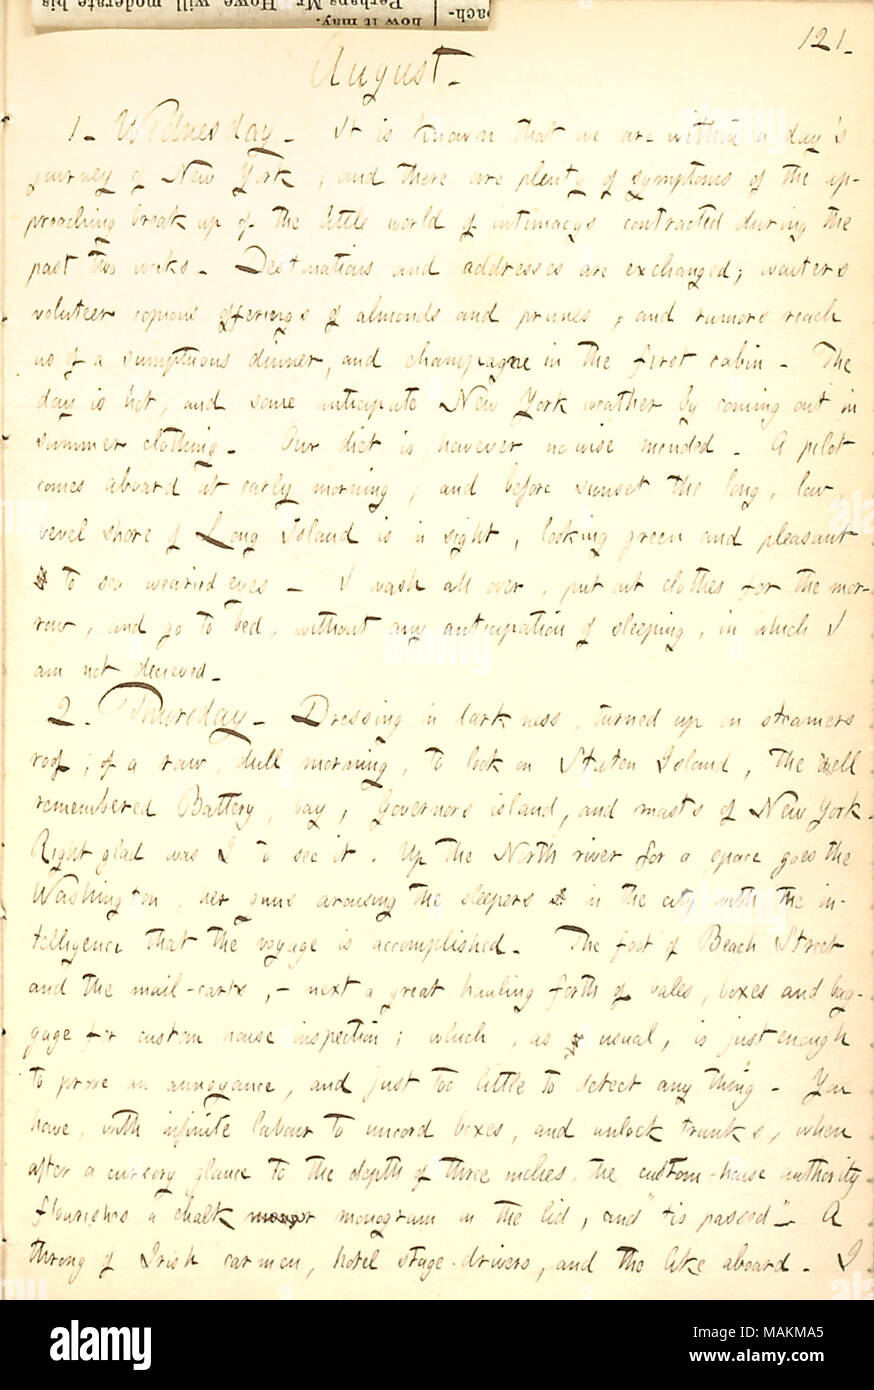 how it may.
Perhaps Mr. Howe will moderate his
each-
121.
August.
1. Wednesday. It is known that we are within a day's
journey of New York; and there are plenty of symptoms of the ap-
proaching break up of the little world of intimacys contracted during the
past two weeks. Destinations and addresses are exchanged; waiters
volunteer copious offerings of almonds and prunes; and rumors reach
us of a sumptuous dinner, and champagne in the first cabin. The
day is hot, and some anticipate New York weather by coming out in
summer clothing. Our diet is however no wise mended. A pilot
comes aboard at early morning; and before sunset the long, low,
level shore of Long Island is in sight, looking green and pleasant
to sea wearied eyes. I wash all over, put out clothes for the mor-
row, and go to bed, without any anticipation of sleeping, in which I
am not decieved.
2. Thursday. Dressing in darkness, turned up on steamers
roof; of a raw, dull morning, to look on Staten Island, the well
remembered Battery, bay, Governors island, and masts of New York.
Right glad was I to see it. Up the North river for a space goes the
Washington, her guns arousing the sleepers in the city with the in-
telligence that the voyage is accomplished. The foot of Beach Street
and the mail-carts, - next a great hauling forth of vales, boxes and bag-
gage for custom house inspection; which, as usual, is just enough
to prove an annoyance, and just too little to detect any thing. You
have, with infinite labour to uncord boxes, and unlock trunks, when
after a cursory glance to the depth of three inches, the custom-house authority
flourishes a chalk monogram on the lid, and "tis passed". A
throng of Irish carmen, hotel stage-drivers, and the like aboard. I
alamy
Image ID: MAKMA5
www.alamy.com